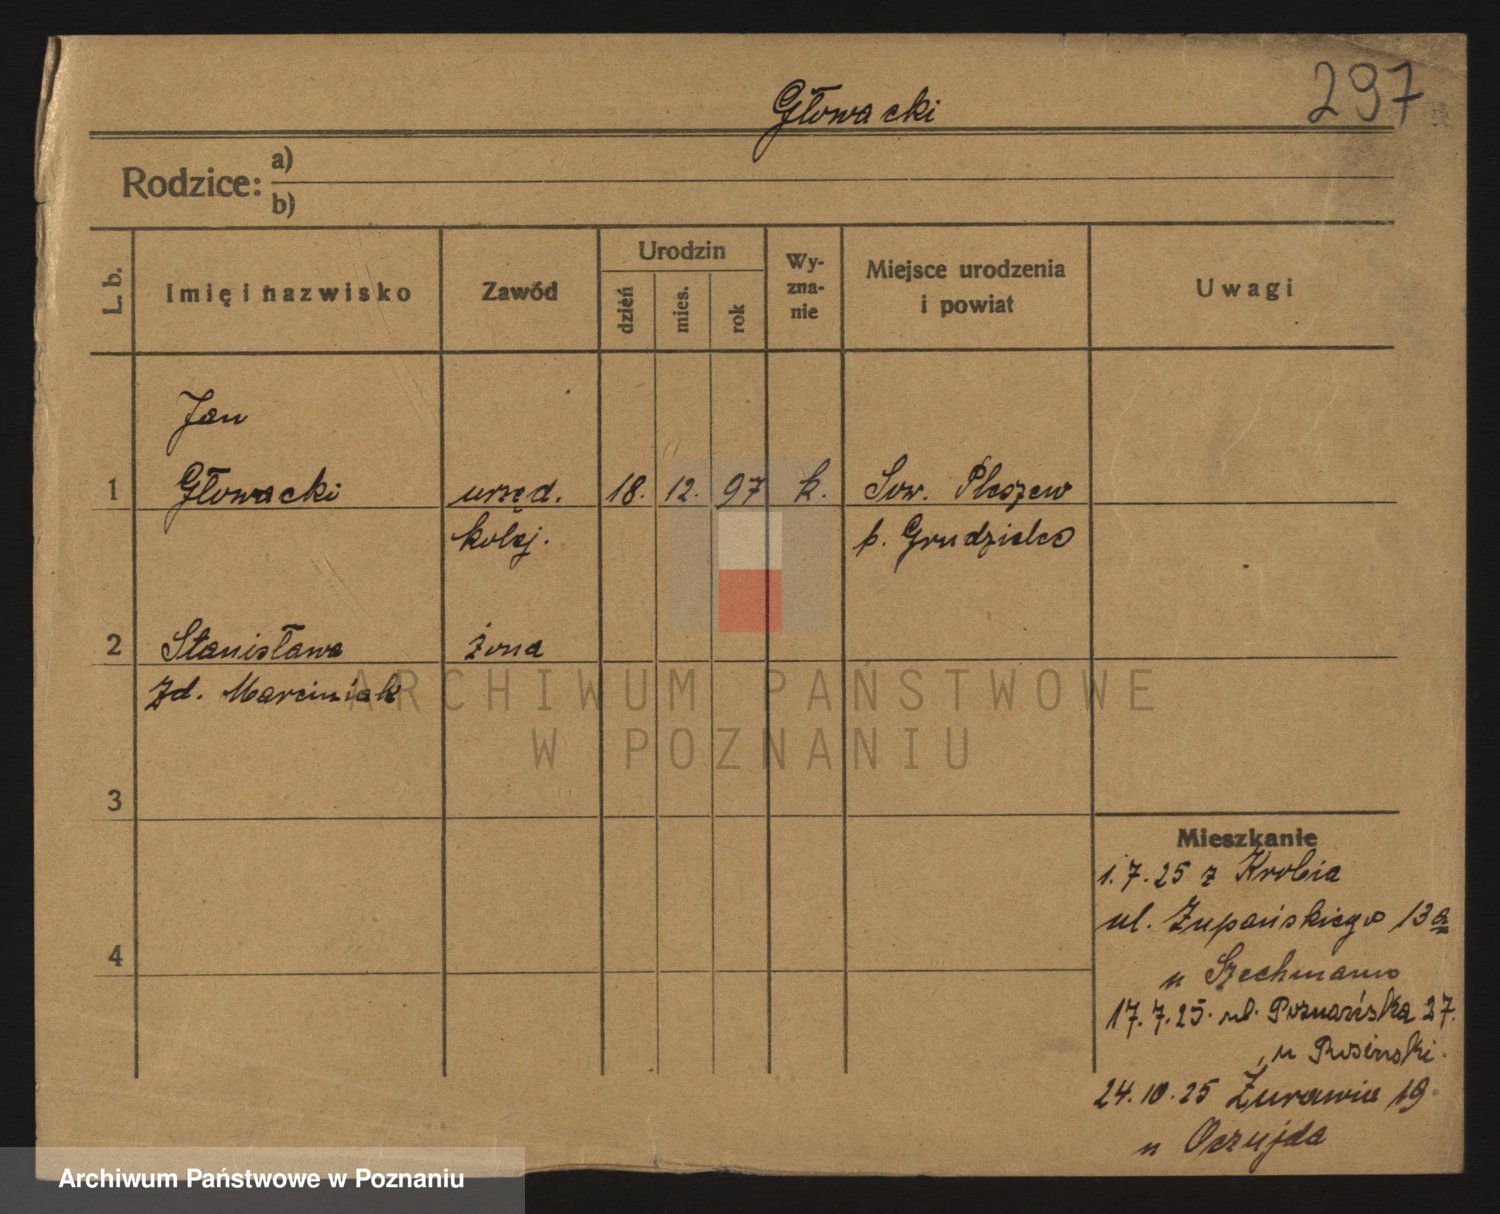 297
Głowacki
Rodzice: a)
b)
L. b.
Imię i nazwisko
Zawód
Urodzin
dzień
mies.
rok
Wy-
zna-
nie
Miejsce urodzenia
i powiat
Uwagi
Jan
1 Głowacki urzęd. 18. 12. 97 k. Sow. Pleszew
kolej. p. Grudzielec
2 Stanisława żona
zd. Marciniak
3
4
Mieszkanie
1.7.25 z Krobia
ul. Żupańskiego 13a
u Szechmann
17.7.25. ul. Poznańska 27.
u Rosinski.
24.10.25 Żurawia 19
u Oczujda
ARCHIWUM PAŃSTWOWE
W POZNANIU
Archiwum Państwowe w Poznaniu